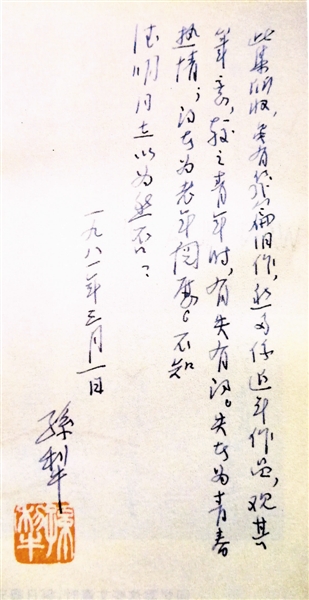 此集所收,虽有篇旧作,然多系近年作品,观其
笔意,较之青年时,有失有得。失者为青春
热情;得者为老年阅历。不知
德明同志以为然否?
一九八一年三月一日
孫犁
孫犁